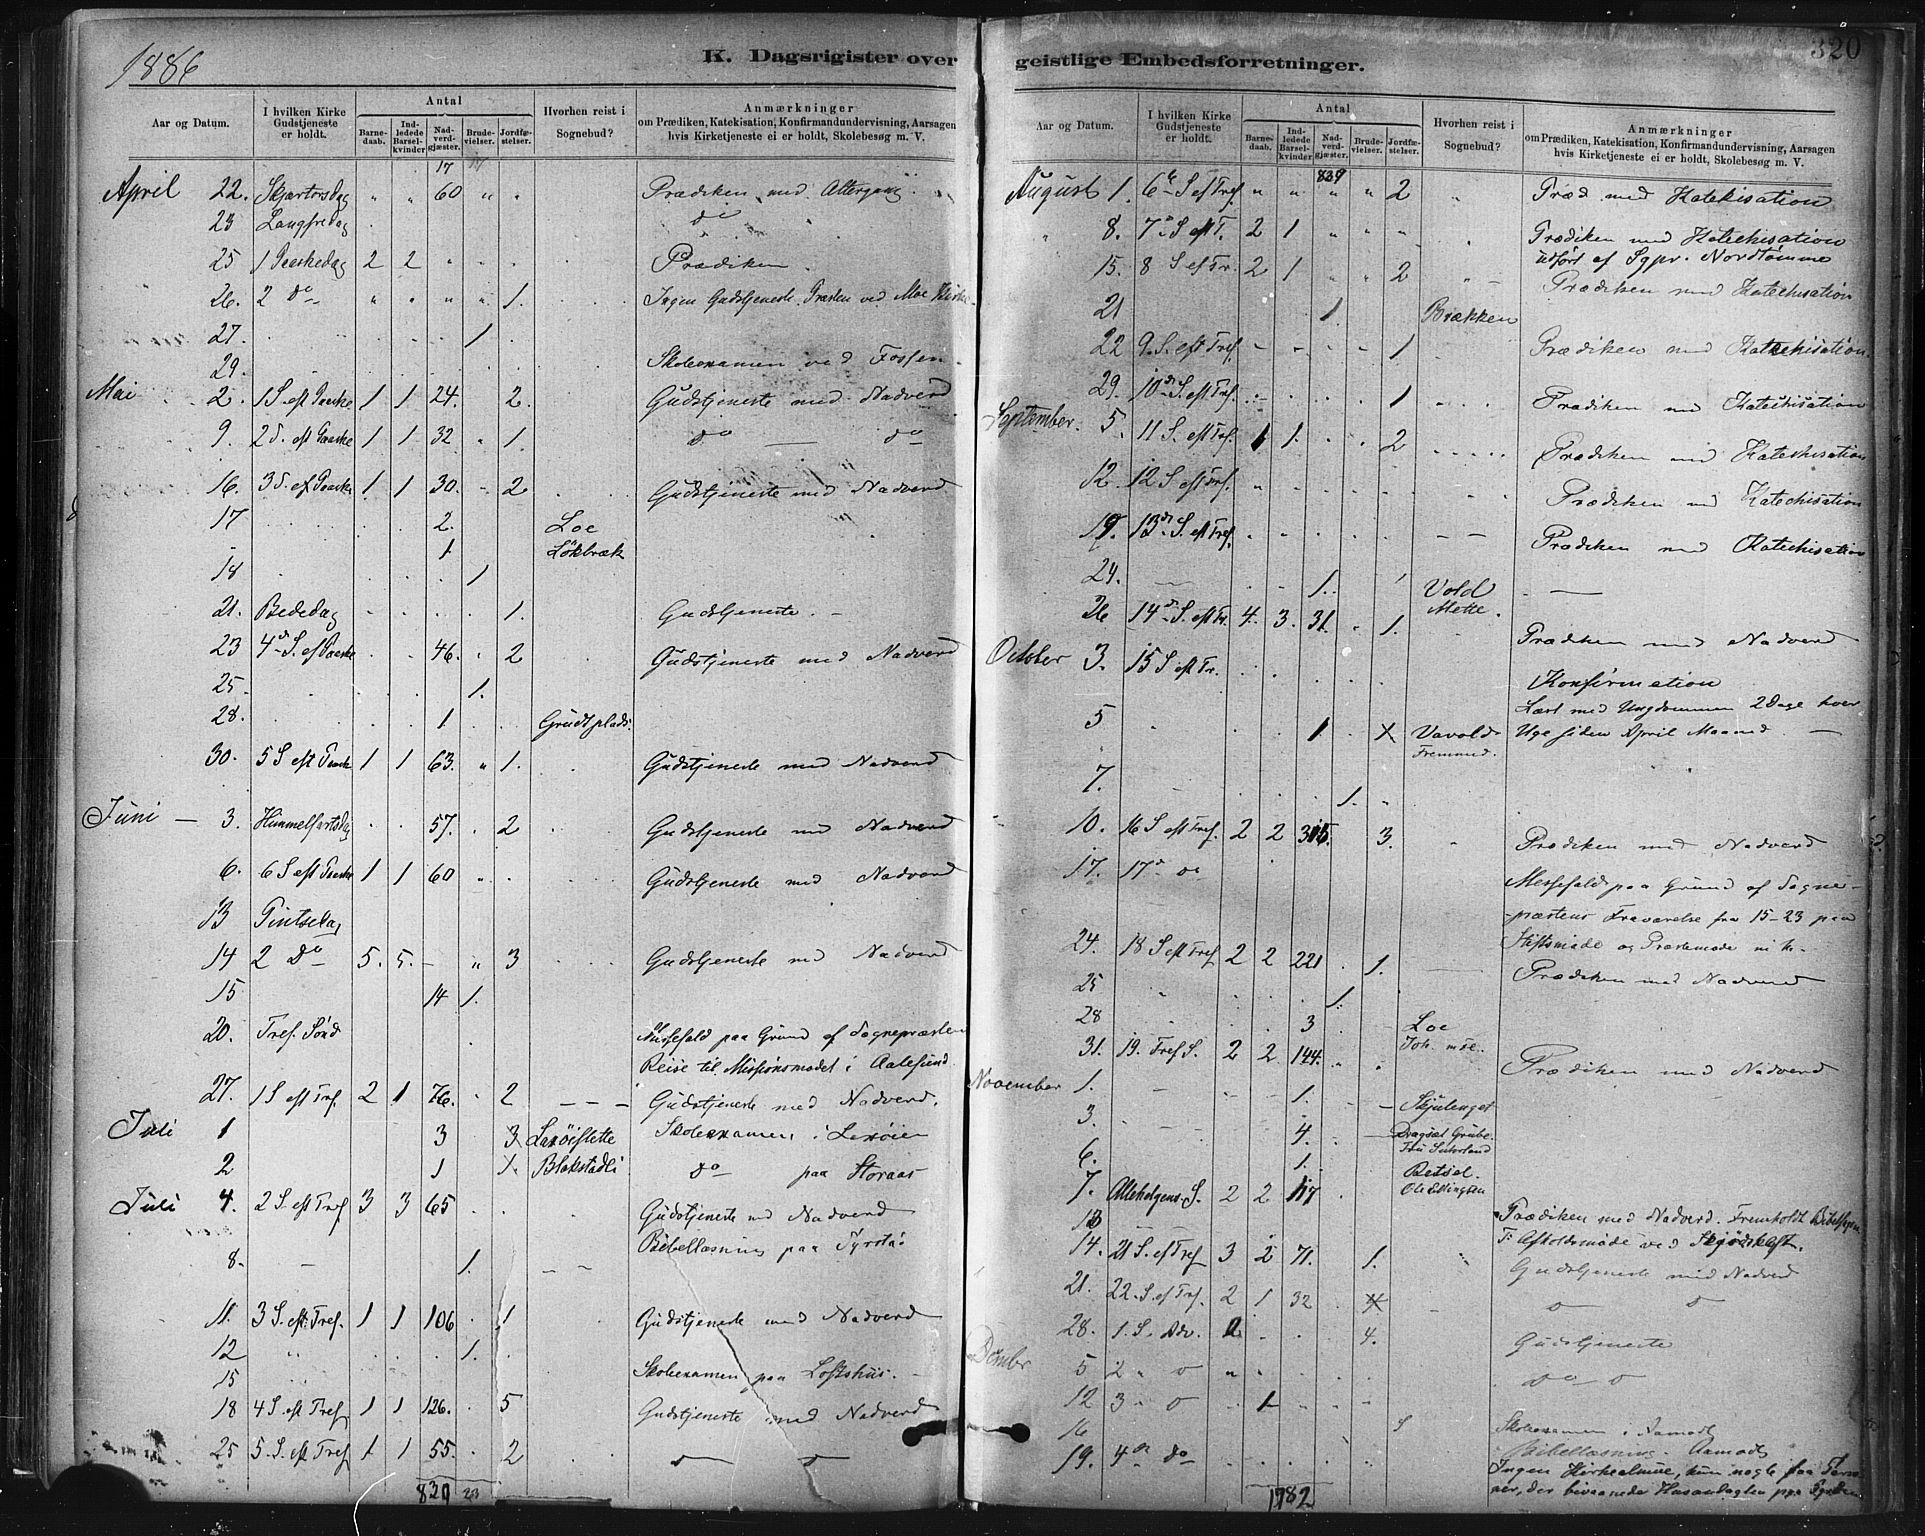 1886
K. Dagsrigister over
Aar og Datum. I hvilken Kirke Gudstjeneste er holdt. Antal Barnedaab. Indledede Barselkvinder Nadverdgjæster. Brudevielser. Jordfæstelser. Hvorhen reist i Sognebud? Anmærkninger om Prædiken, Katekisation, Konfirmandundervisning, Aarsagen hvis Kirketjeneste ei er holdt, Skolebesøg m. V.
17
April 22. Skjærtorsdag " " 60 " " Prædiken med Altergang
23 Langfredag do
25 1 Paaskedag 2 2 Prædiken.
26. 2 do " " " " 1. Ingen Gudstjeneste. Præsten ved Moe Kirke
27. 1
29. Skoleexamen ved Fossen
Mai 2. 1 S. eft Paaske 1 1 24. 2. Gudstjeneste med Nadverd
9. 2 S. eft Paaske 1 1 32 1. do — do
16. 3 S. ef Paaske 1 1 30. 2 Gudstjeneste med Nadverd
17 2. Loe
1. Løkbræk
18 1
21. Bededag 1. Gudstjeneste. —
23 4de S. ef Paaske 46. 2 Gudstjeneste med Nadverd
25. 1.
28. 1. Grudtplads.
30. 5 S eft Paaske 1 1 63. " 1. Gudstjeneste med Nadverd
Juni — 3. Himmelfartsdag 57. 2 Gudstjeneste med Nadverd
6. 6 S eft Paaske 1 1 60 Gudstjeneste med Nadverd
13 Pintsedag
14 2 do 5. 5. — " 3 Gudstjeneste med Nadverd
15 14 1.
20. Tref. Sønd Messefald paa Grund af Sognepræsten
Reise til Missionsmødet i Aalesund.
27. 1 S eft Tref. 2 1 76. 2 — — — Gudstjeneste med Nadverd.
Juli 1 3 3 Lenøislette Skoleexamen i Lenøien
2 1 1. Blokstadli do paa Storaas
Juli 4. 2 S. eft Tref 3 3 65 Gudstjeneste med Nadverd
Bibellæsning paa Fyrstà
8. — 1.
11. 3 S. eft: Tref. 1 1 106 1 Gudstjeneste med Nadverd
12 1.
15 Skoleexamen paa Loftshus.
18 4 S. eft Tref 1 1 126. 5 Gudstjeneste med Nadverd
25 5. S. eft Tref 1 1 55. 2
839 23
geistlige Embedsforretninger.
320
Aar og Datum. I hvilken Kirke Gudstjeneste er holdt. Antal Barnedaab. Indledede Barselkvinder Nadverdgjæster. Brudevielser. Jordfæstelser. Hvorhen reist i Sognebud? Anmærkninger om Prædiken, Katekisation, Konfirmandundervisning, Aarsagen hvis Kirketjeneste ei er holdt, Skolebesøg m. V.
839
August 1. 6te S ef Tref " " " " 2 Præd med Katekisation
8. 7de S eft T. 2 1 Prædiken med Katechisation
udført af Sgpr. Nordtømme
15. 8 S ef Tr. 2 1 2 Prædiken med Katechisation
21 1. Brækken
22 9. S. eft Tref. 1 Prædiken med Katechisation.
29. 10de S. eft Tref. 1 Prædiken med Katechisation
September. 5. 11 S. eft Tref. 1 1. 2 Prædiken med Katechisation
12. 12 S eft Tref. Prædiken med Katechisation
19 13de S. eft Tref. Prædiken med Katechisation
24. 1. Vold
Mette.
26 14de S. eft Tr. 4. 3. 31. 1. Prædiken med Nadverd
October 3. 15 S eft Tr. Konfirmation
Læst med Ungdommen 2 Dage hver
5 1 X Vavold Uge siden April Maaned. —
7. 1.
10. 16 S eft Tref. 2 2 3. Prædiken med Nadverd
17. 17de do Messefald paa Grund af Sogne-
-præstens Fraværelse fra 15-23 paa
Stiftsmøde og Præstemøde
24. 18 S eft Tref 2 2 221 1. Prædiken med Nadverd
25 1.
28 3 Loe
31. 19. Tref S. 2 2 144. Prædiken med Nadverd
November 1. 1. Skjulenget
3. 4. Dragsæt Grube.
6. 1. Betsel.
Ole Ellingsen
7. Allehelgens S. 2 2 117 Prædiken med Nadverd. Fremholdt
13 — Afholdsmøde ved
14. 21 S. ef Tref 3 2 71. 1. Gudstjeneste med Nadverd
21. 22. S. ef Tref. 2 1 32
28. 1. S. Adv. 2 4. Gudstjeneste
5 2 "
12 3 1
16 Skoleexamen i Aamodt
Bibellæsning. Aamodt
19. 4de do Ingen Kirkealmue, kun nogle faa Perso-
ner, der bivaanede Husandagten paa
1782